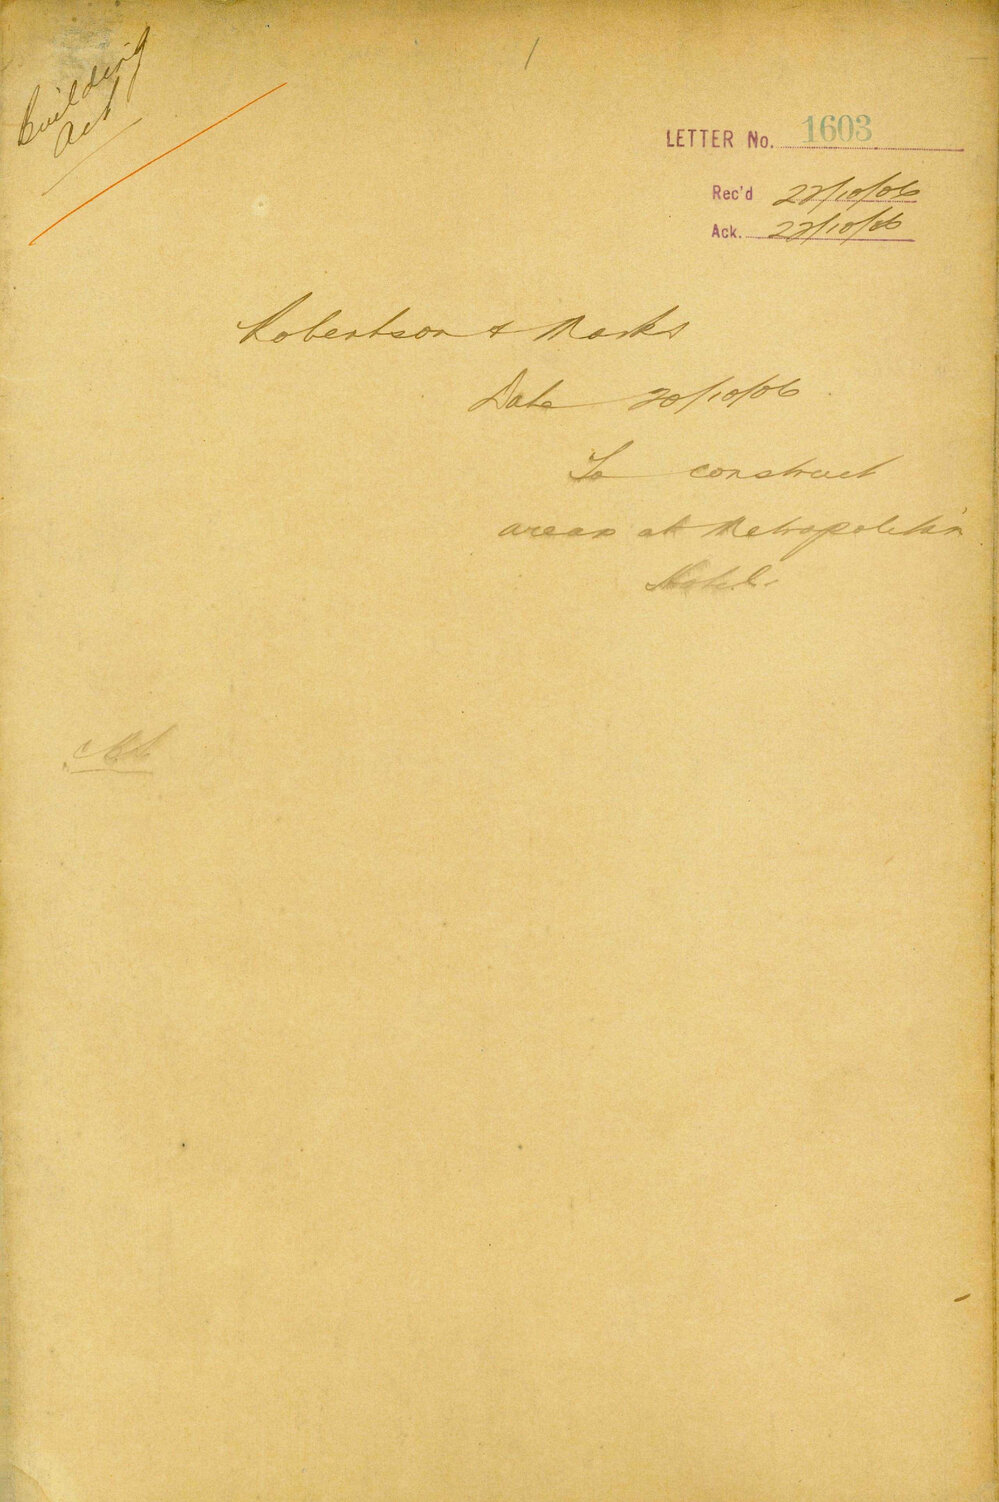 Building
Act
LETTER No. 1603
Rec'd 22/10/06
Ack. 22/10/06
Robertson & Marks
Date 20/10/06
To construct
areas at Metropolitan
Hotel.